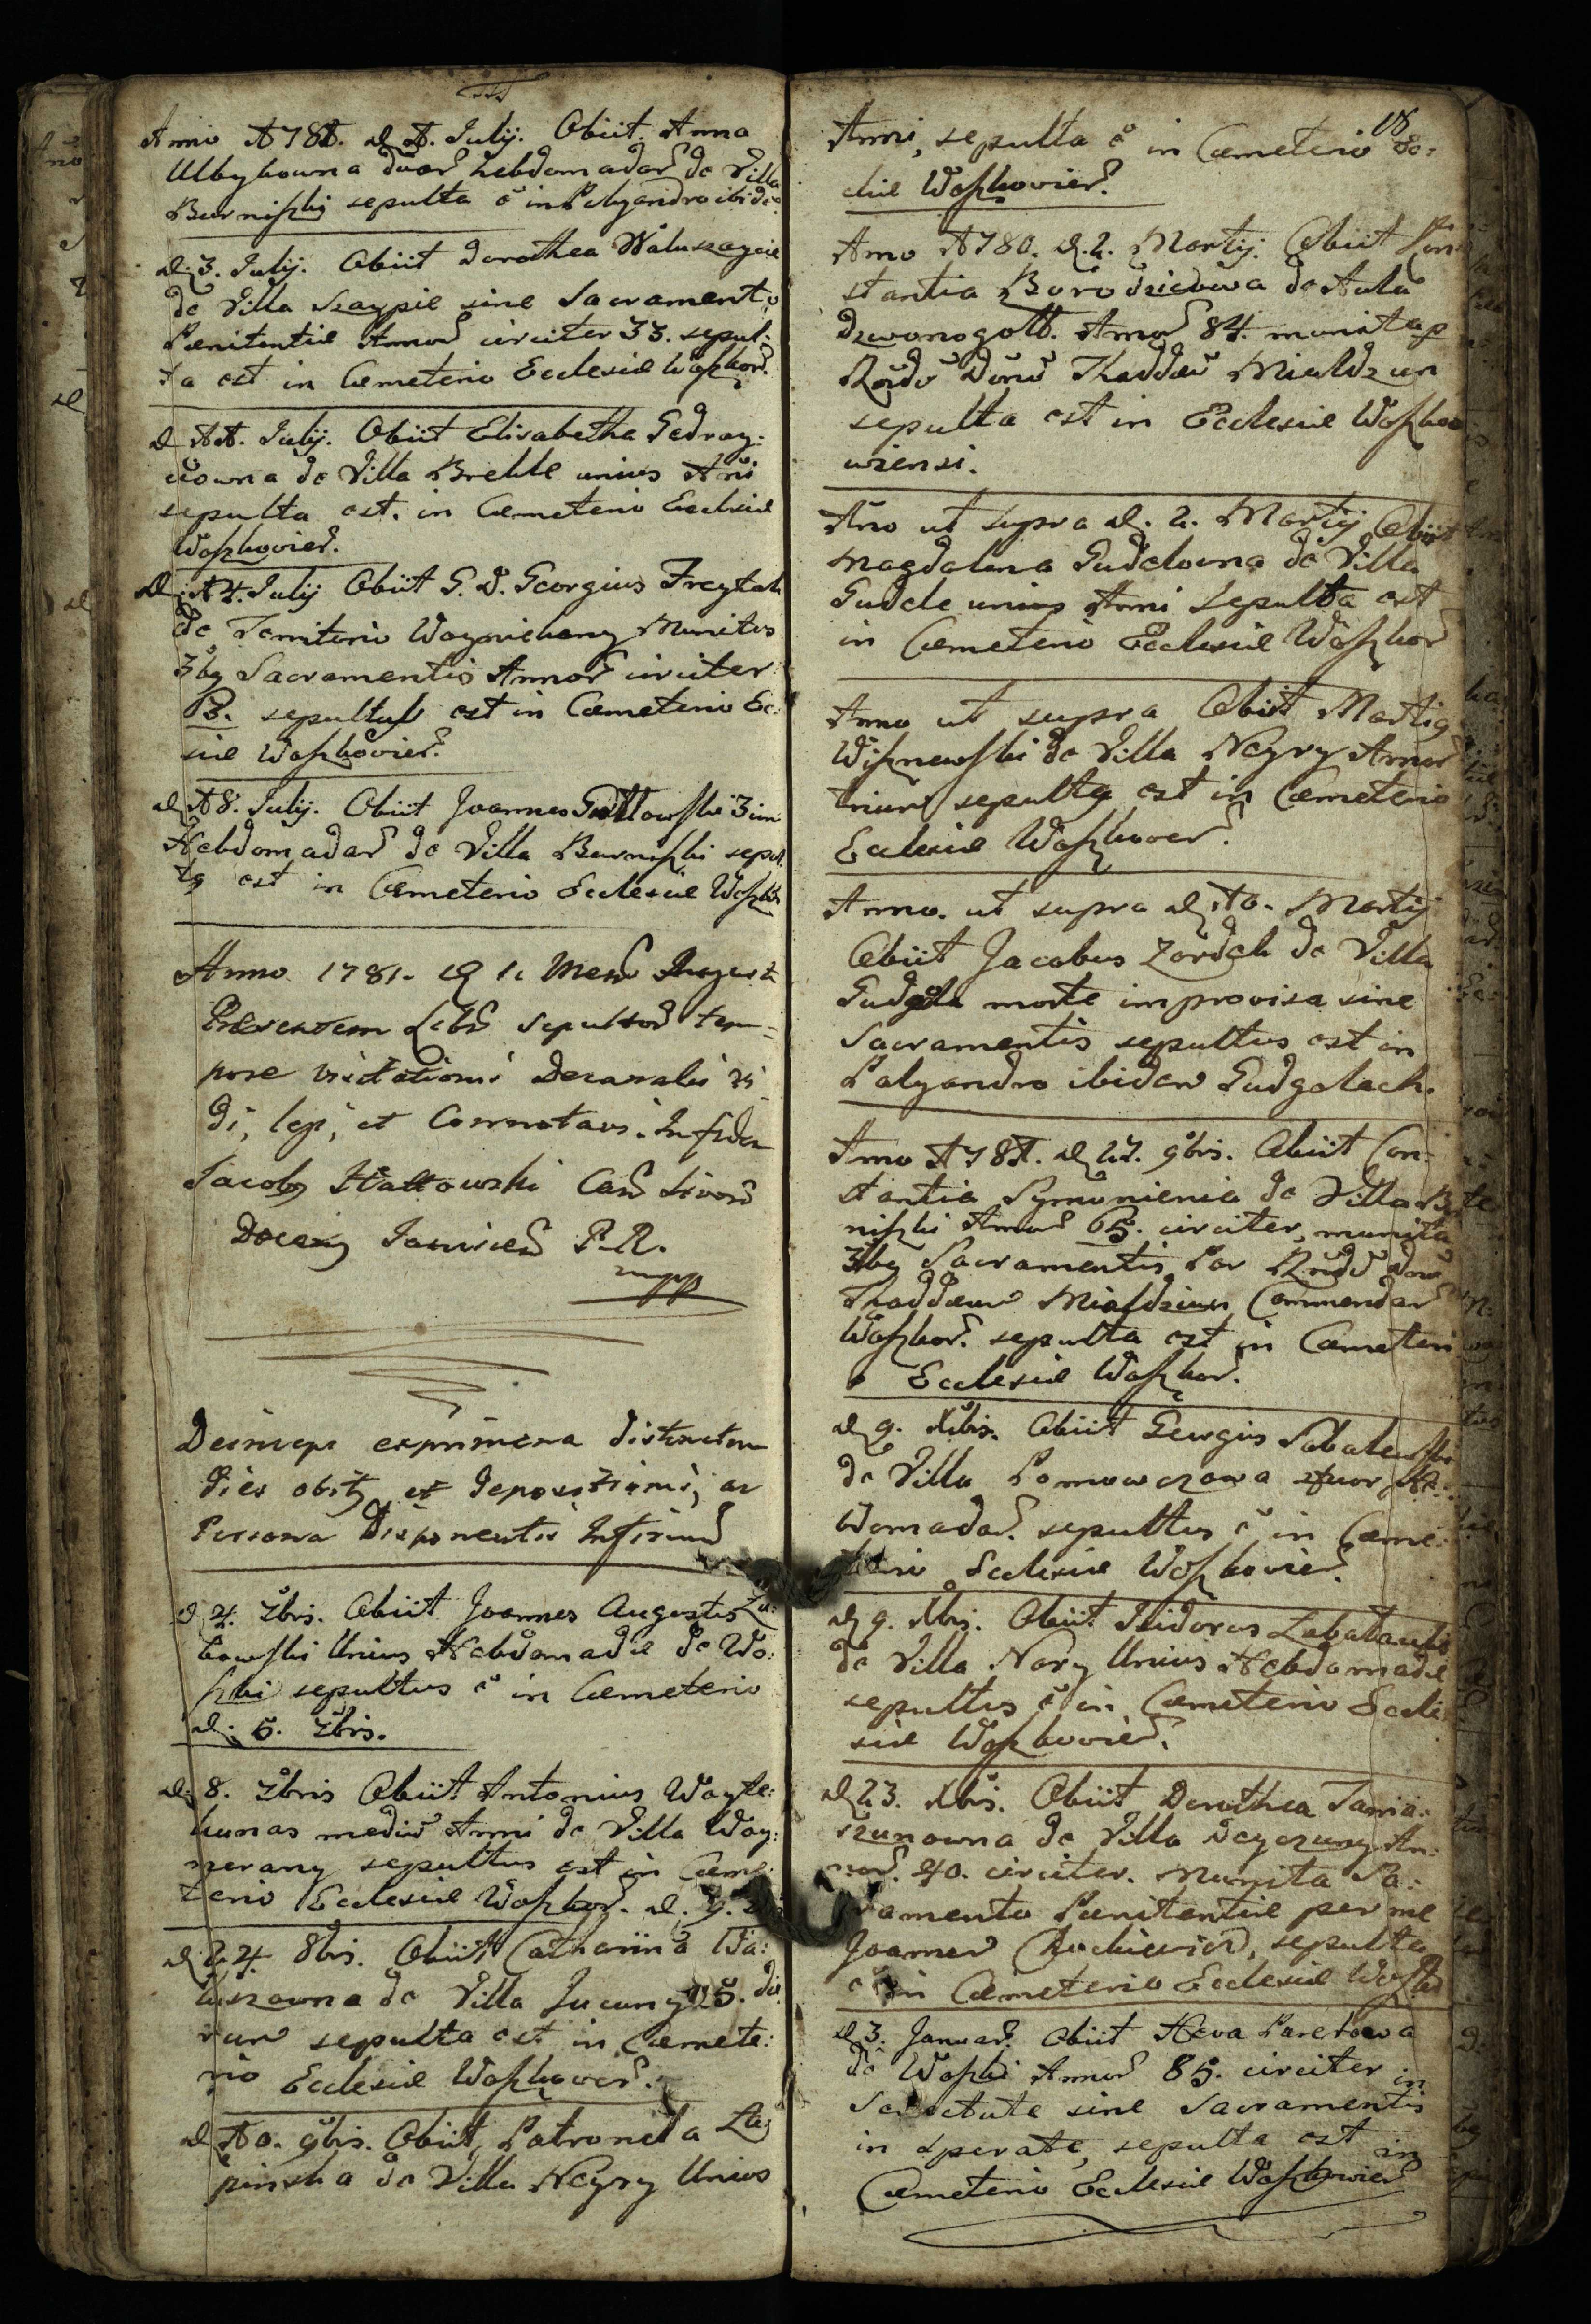 Anno 1781. d. 1. Julij. Obiit Anna
Ulbykowna duar hebdomadar de Villa
Burniszki sepulta ē in Polyandro ibidē
d. 3. Julij. Obiit Dorothea
de Villa Szaypie sine Sacramento
Pænitentiæ Annor circiter 33. sepul:
ta est in Cæmeterio Ecclesiæ Waszkov.
d 11. Julij. Obiit Elisabetha Gedray:
ciowna de Villa unius Ani
sepulta est. in Cæmeterio Ecclesiæ
Waszkovien.
d. 14. Julij Obiit G. D. Georgius Freytah
de Territorio Munitus
3bg Sacramentis Annor circiter
sepultus est in Cæmeterio Ec:
siæ Waszkovien.
d 18. Julij. Obiit Joannes 3ium
Hebdomadar de Villa Burniszki sepul
tg est in Cæmeterio Ecclesiæ Waszkov
Anno 1781. d 1. Mens August
Præsentem Libr Sepultor tem-
pore visitationis Decanalis vi
di, legi, et Connotavi. In fidem
Jacobg Can Livon
P. R.
mpp
Deinceps exprimena distincten
dies obitg et depositionis, ac
Persona Disponentis Infirmum
d 4. 7bris. Obiit Joannes Augustus Lu:
kowski Unius Hebdomadæ de Wa:
szki sepultus ē in Cæmeterio
d. 5. 7bris.
d. 8. 7bris Obiit Antonius Wayte:
kunas mediu Anni de Villa Way:
nerany sepultus est in Cæme:
terio Ecclesiæ Waszkov. d. 9.
d 24. 8bris. Obiit Catharina Wa:
luszowna de Villa Jucuny 15. die
rum sepulta est in Cæmete:
rio Ecclesiæ Waszkovien.
d 10. 9bris. Obiit Petronela La:
pinska de Villa Neyry Unius
18
Anni, sepulta ē in Cæmeterio Ec:
clsiæ Waszkovien.
Anno 1780. d. 2. Martij. Obiit Kon
stantia Borodziczowa de Aula
Dzwonogoll. Annor 84. munita p
Rndu Dnu Thaddæu Mialdzun
sepulta est in Ecclesiæ Waszko
wiensi.
Ano ut supra d. 2. Martij Obiit
Magdalena Gudelowna de Villa
Gudele unius Anni sepulta est
in Cæmeterio Ecclesiæ Waszkov
Anno ut supra Obiit Martig
Wiszniewski de Villa Neyry Annor
trium sepultg est in Cæmeterio
Ecclesiæ Waszkovien.
Anno. ut supra d. 10. Martij
Obiit Jacobus Zordek de Villa
morte improvisa sine
Sacramentis sepultus est in
Polyandro ibidem Gudgolach.
Anno 1781. d 27. 9bris. Obiit Con:
stantia Symonienia de Villa Bu
niszki Annor 65. circiter, munita
3bg Sacramentis Par Rndu Dnu
Thaddæum Mialdzun Commendar
Waszkov. sepulta est in Cæmeteri
o Ecclesiæ Waszkov.
d 9. Xbris. Obiit Georgius
de Villa Pomowczowa He:
bdomadar. sepultus ē in Cæme:
terio Ecclesiæ Waszkovien.
d 9. Xbris. Obiit Isidorus
de Villa Nory Unius Hebdomadæ
sepultus ē in Cæmeterio Eccle
siæ Waszkovien.
d 23. Xbris. Obiit Dorothea Tama:
szunowna de Villa Deyczuny An:
nor. 40. circiter. Munita Sa:
cramento Pænitentiæ per me
Joannem sepulta
ē in Cæmeterio Ecclesiæ Waszkov
d 3. Januar. Obiit Heva
de Waszki Annor 85. circiter in
Senectute sine Sacramentis
in sperate, sepulta est in
Cæmeterio Ecclesiæ Waszkovien